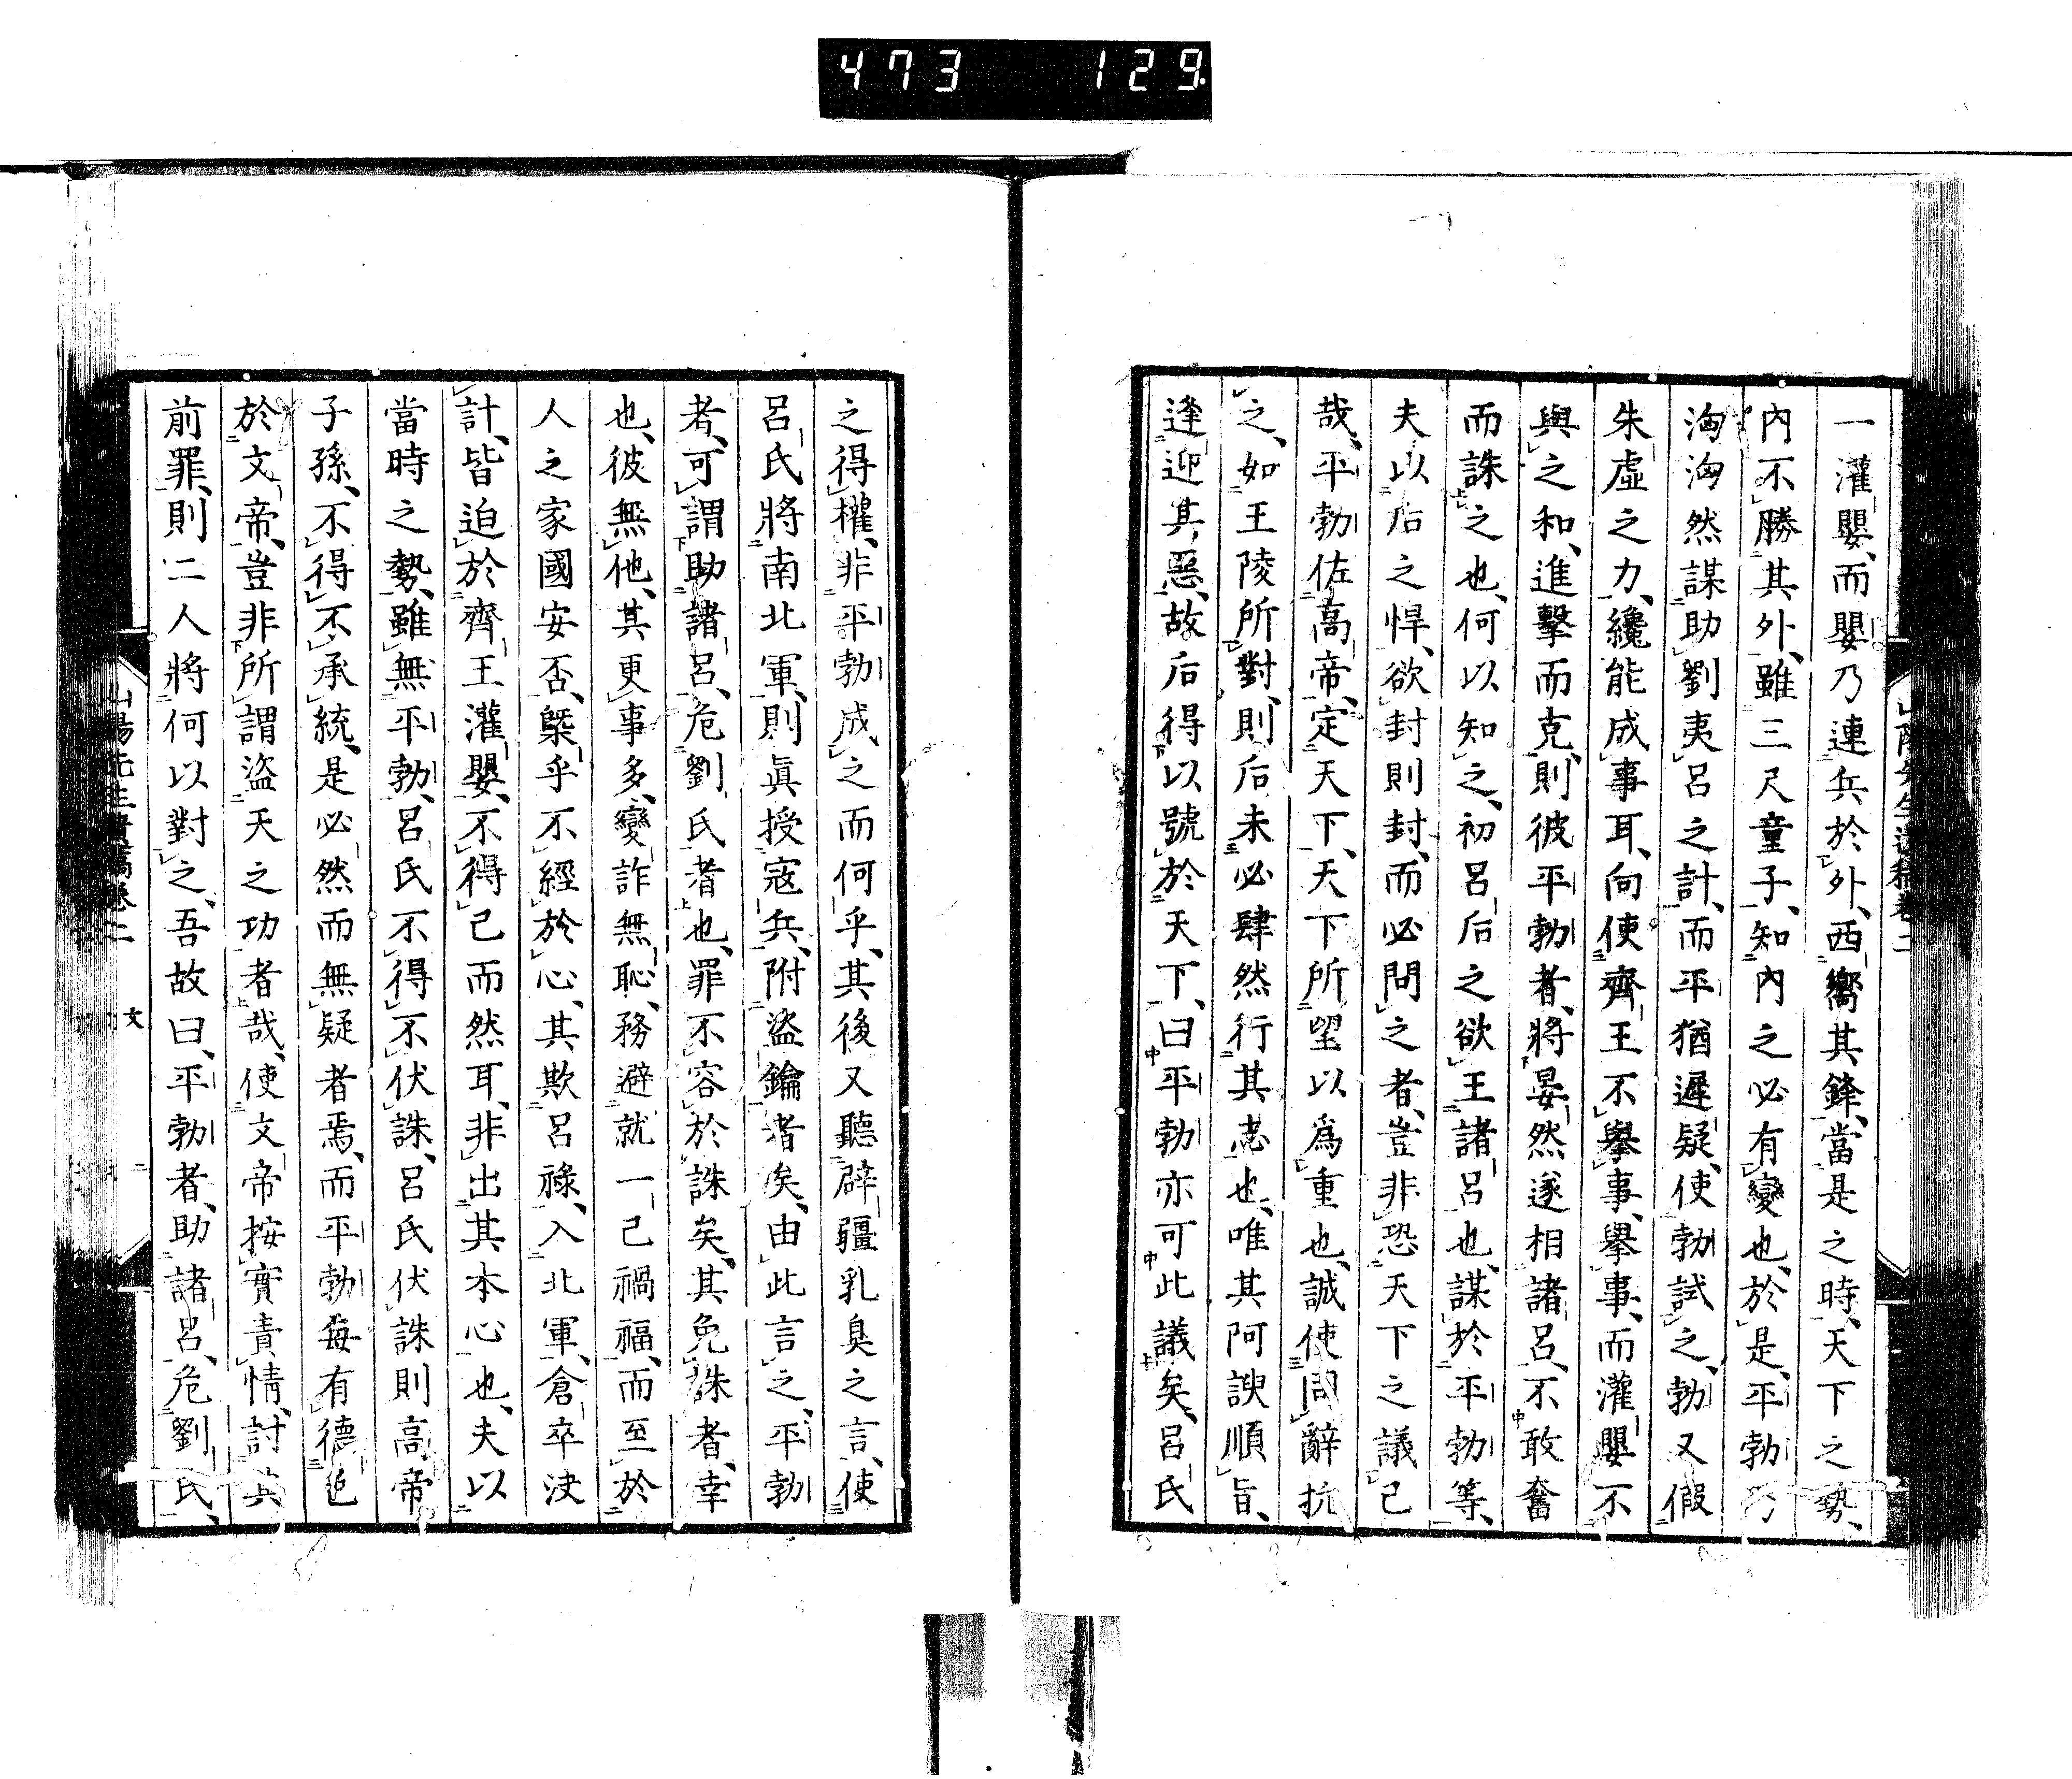 473 129
一灌嬰、而嬰乃連兵於外、西嚮其鋒、當是之時、天下之勢、
內不勝其外、雖三尺童子、知內之必有變也、於是、平勃乃
洶洶然謀助劉夷呂之計、而平猶遲疑、使勃試之、勃又假
朱虛之力、纔能成事耳、向使齊王不擧事、擧事、而灌嬰不
與之和、進擊而克、則彼平勃者、將晏然遂相諸呂、不敢奮
而誅之也、何以知之、初呂后之欲王諸呂也、謀於平勃等、
夫以后之悍、欲封則封、而必問之者、豈非恐天下之議己
哉、平勃佐高帝、定天下、天下所望以爲重也、誠使同辭抗
之、如王陵所對、則后未必肆然行其志也、唯其阿諛順旨、
逢迎其惡、故后得以號於天下、曰平勃亦可此議矣、呂氏
之得權、非平勃成之而何乎、其後又聽辟疆乳臭之言、使
呂氏將南北軍、則眞授寇兵、附盜鑰者矣、由此言之、平勃
者、可謂助諸呂、危劉氏者也、罪不容於誅矣、其免誅者、幸
也、彼無他、其更事多、變詐無恥、務避就一己禍福、而至於
人之家國安否、槩乎不經於心、其欺呂祿、入北軍、倉卒決
計、皆迫於齊王灌嬰、不得已而然耳、非出其本心也、夫以
當時之勢、雖無平勃、呂氏不得不伏誅、呂氏伏誅則高帝
子孫、不得不承統、是必然而無疑者焉、而平勃每有德色
於文帝、豈非所謂盜天之功者哉、使文帝按實責情、討其
前罪、則二人將何以對之、吾故曰、平勃者、助諸呂、危劉氏、